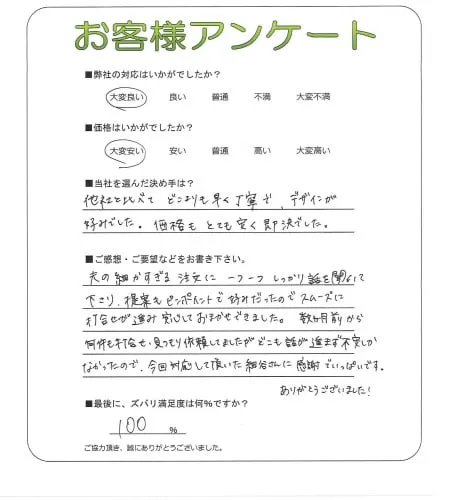 お客様アンケート
■弊社の対応はいかがでしたか？
大変良い 良い 普通 不満 大変不満
■価格はいかがでしたか？
大変安い 安い 普通 高い 大変高い
■当社を選んだ決め手は？
他社と比べて どこよりも早く丁寧で、デザインが
好みでした。価格も とても安く即決でした。
■ご感想・ご要望などをお書き下さい。
夫の細かすぎる注文に 一つ一つ しっかり話を聞いて
下さり、提案もピンポイントで好みだったのでスムーズに
打合せが進み安心しておまかせできました。数か月前から
何件も打合せ・見つもり依頼してましたがどこも話が進まず不安しか
なかったので、今回対応して頂いた細谷さんに感謝でいっぱいです。
ありがとうございました！
■最後に、ズバリ満足度は何％ですか？
100 ％
ご協力頂き、誠にありがとうございました。